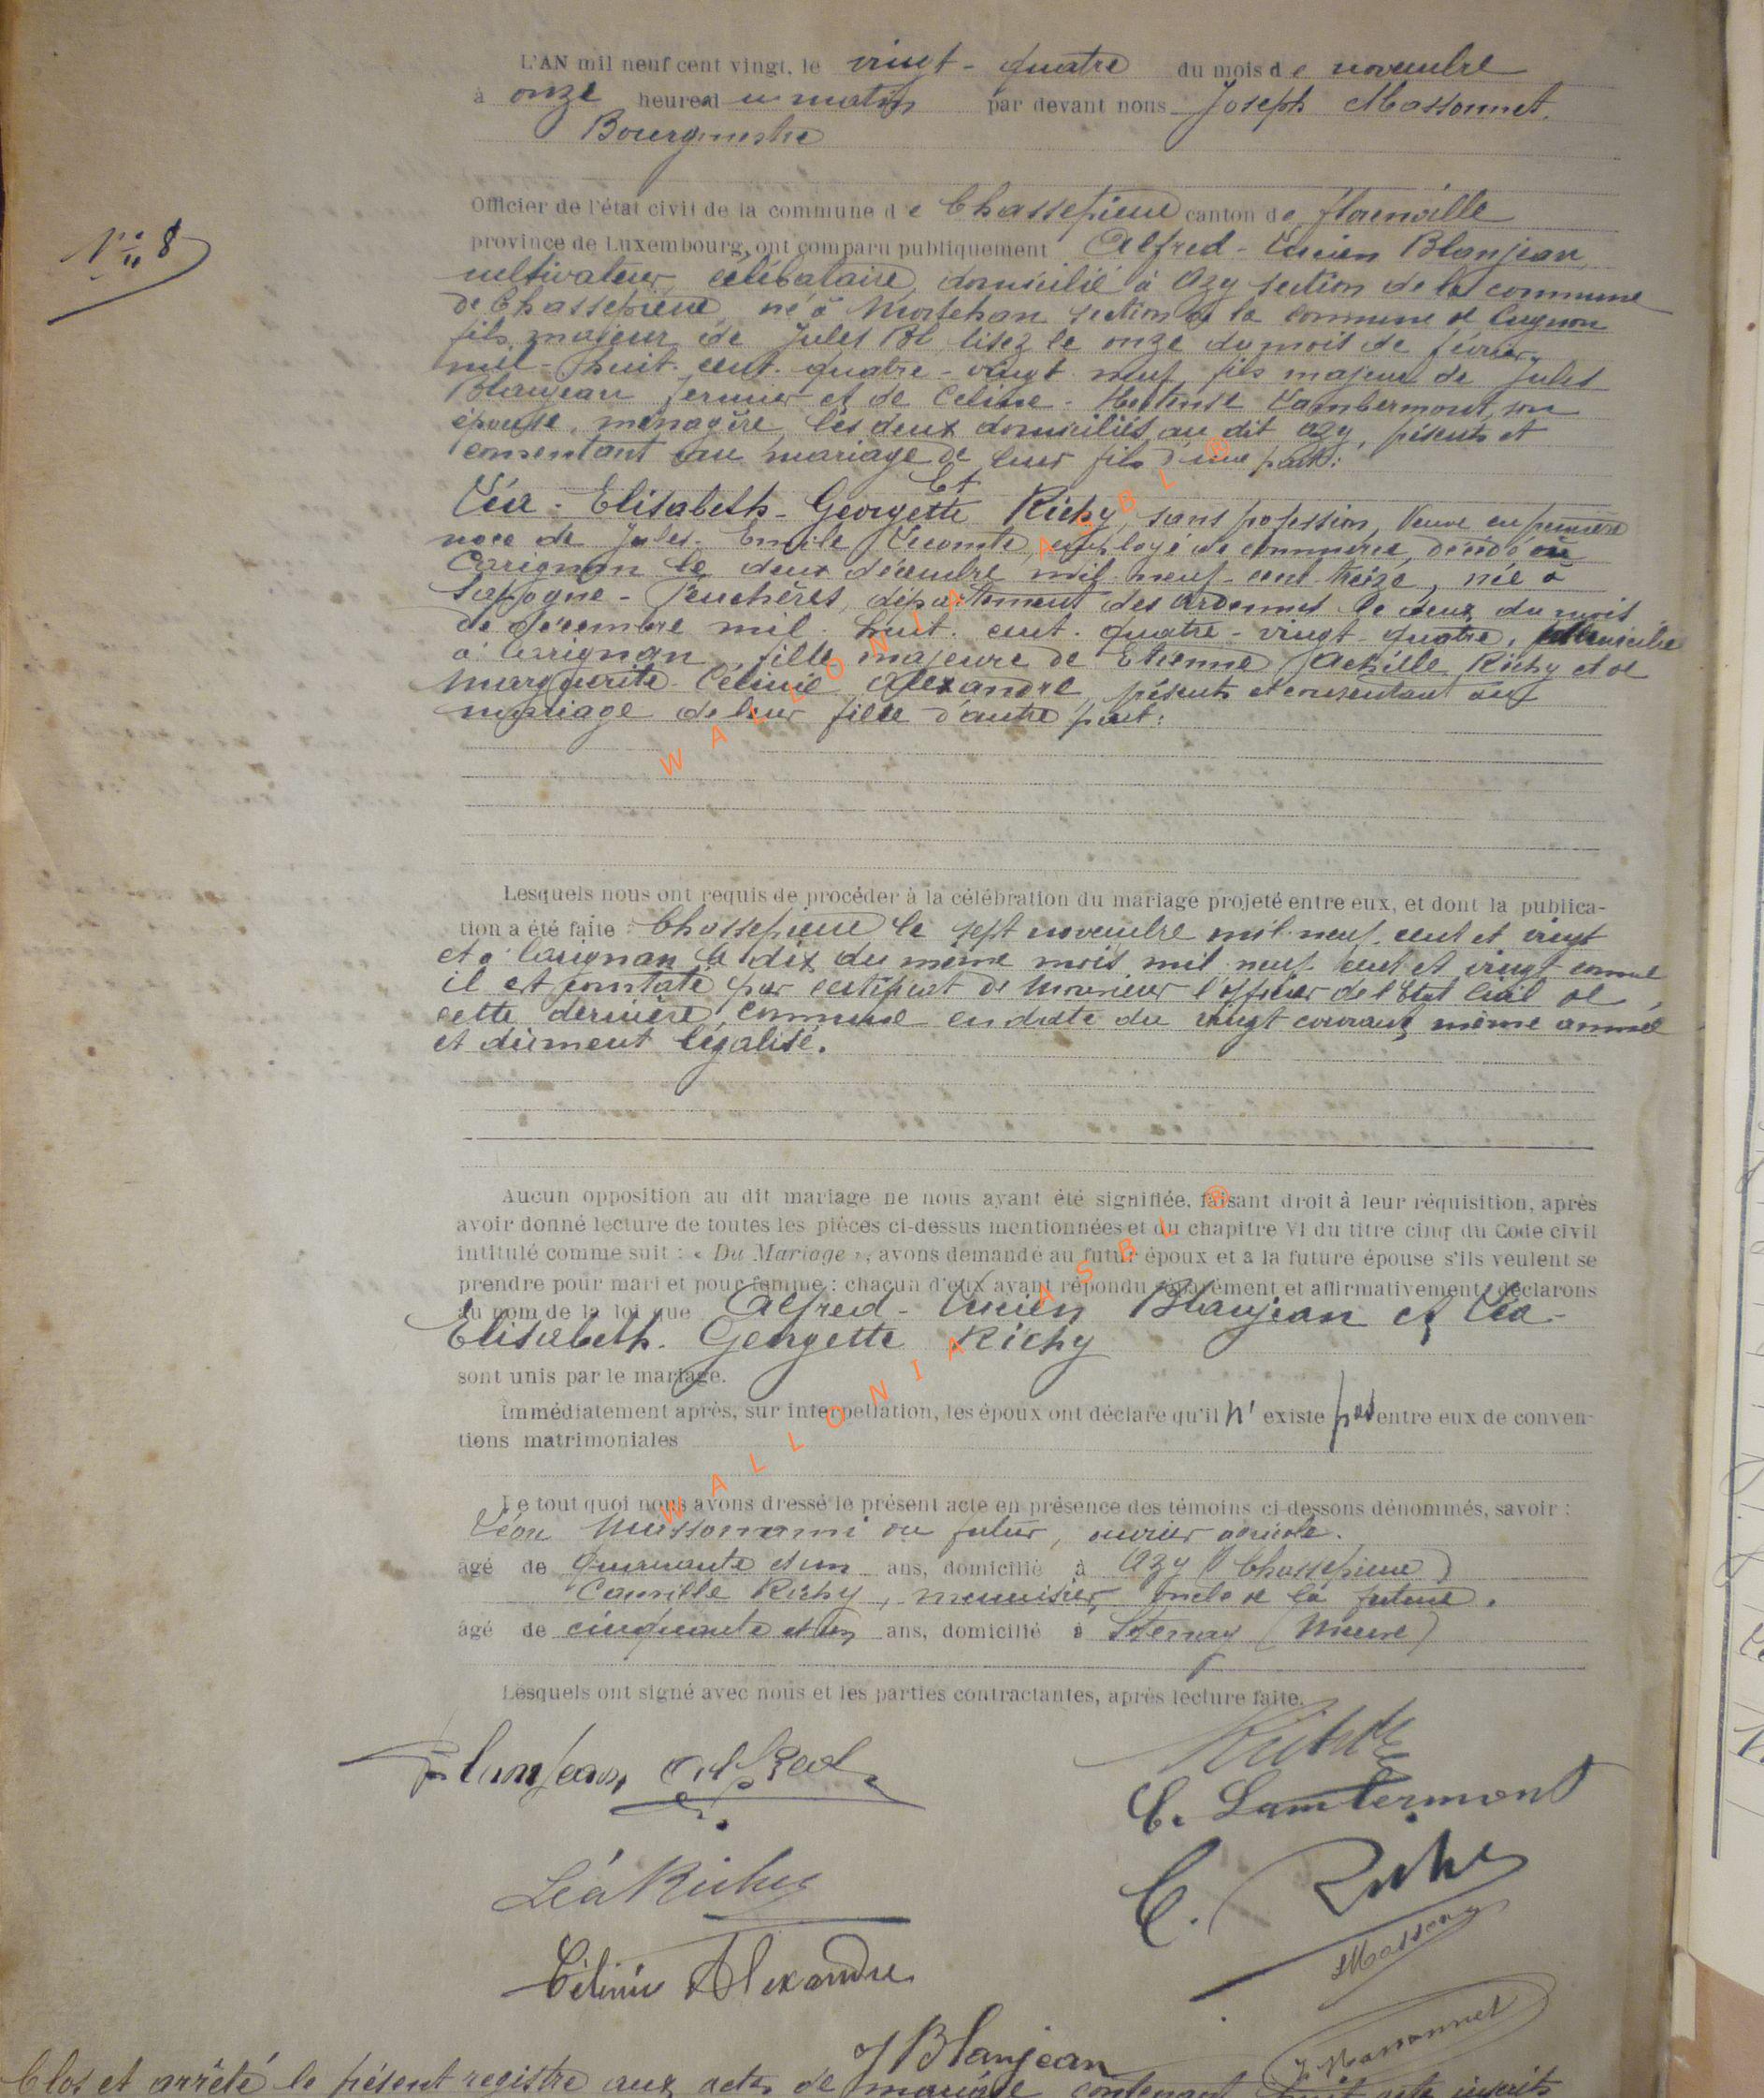 L'AN mil neuf cent vingt, le vingt-quatre du mois de novembre
à onze heures du matin par devant nous Joseph Massonnet,
Bourgmestre
Officier de l'état civil de la commune de Chassepierre canton de Florenville
N° 8
province de Luxembourg, ont comparu publiquement Alfred-Lucien Blanjean
cultivateur, célibataire, domicilié à Azy section de la commune
de Chassepierre né à Mortehan section de la commune de Cugnon
fils majeur de Jules Bl, lisez le onze du mois de février
mil-huit-cent-quatre-vingt neuf fils majeur de Jules
Blanjean fermier et de Céline-Hortense Lambermont, son
épouse, ménagère, les deux domiciliés au dit Azy, présents et
consentant au mariage de leur fils d'une part:
Et
Léa-Elisabeth-Georgette Richy, sans profession, Veuve en première
noce de Jules-Emile Lecomte, employé de commerce, décédé à
Carignan le deux décembre mil-neuf-cent-treize, née à
Sapogne-Feuchères, département des Ardennes le deux du mois
de décembre mil-huit-cent-quatre-vingt-quatre, domiciliée
à Carignan, fille majeure de Etienne Achille Richy et de
Marguerite Célinie Alexandre, présents et consentant au
mariage de leur fille d'autre part:
Lesquels nous ont requis de procéder à la célébration du mariage projeté entre eux, et dont la publica-
tion a été faite: Chassepierre le sept novembre mil-neuf-cent et vingt
et à Carignan le dix du même mois mil neuf cent et vingt comme
il est constaté par certificat de Monsieur l'officier de l'Etat Civil de
cette dernière commune en date du vingt courant même année
et dûment légalisé.
Aucun opposition au dit mariage ne nous ayant été signifiée, faisant droit à leur réquisition, après
avoir donné lecture de toutes les pièces ci-dessus mentionnées et du chapitre VI du titre cinq du Code civil
intitulé comme suit : « Du Mariage », avons demandé au futur époux et à la future épouse s'ils veulent se
prendre pour mari et pour femme ; chacun d'eux ayant répondu séparément et affirmativement, déclarons
au nom de la loi que Alfred-Lucien Blanjean et Léa-
Elisabeth-Georgette Richy
sont unis par le mariage.
Immédiatement après, sur interpellation, les époux ont déclaré qu'il n' existe pas entre eux de conven-
tions matrimoniales
Le tout quoi nous avons dressé le présent acte en présence des témoins ci-dessons dénommés, savoir :
Léon ami du futur, ouvrier agricole.
âgé de quarante et un ans, domicilié à Azy (Chassepierre)
Camille Richy, menuisier, oncle de la future.
âgé de cinquante et un ans, domicilié à Stenay (Meuse)
Lesquels ont signé avec nous et les parties contractantes, après lecture faite.
Blanjean Alfred
C. Lambermont
Léa Richy
C. Richy
Célinie Alexandre
J Blanjean
J. Massonnet
Clos et arrêté le présent registre aux actes de mariage contenant huit acte inscrits
WALLONIA ASBL ®
WALLONIA ASBL ®